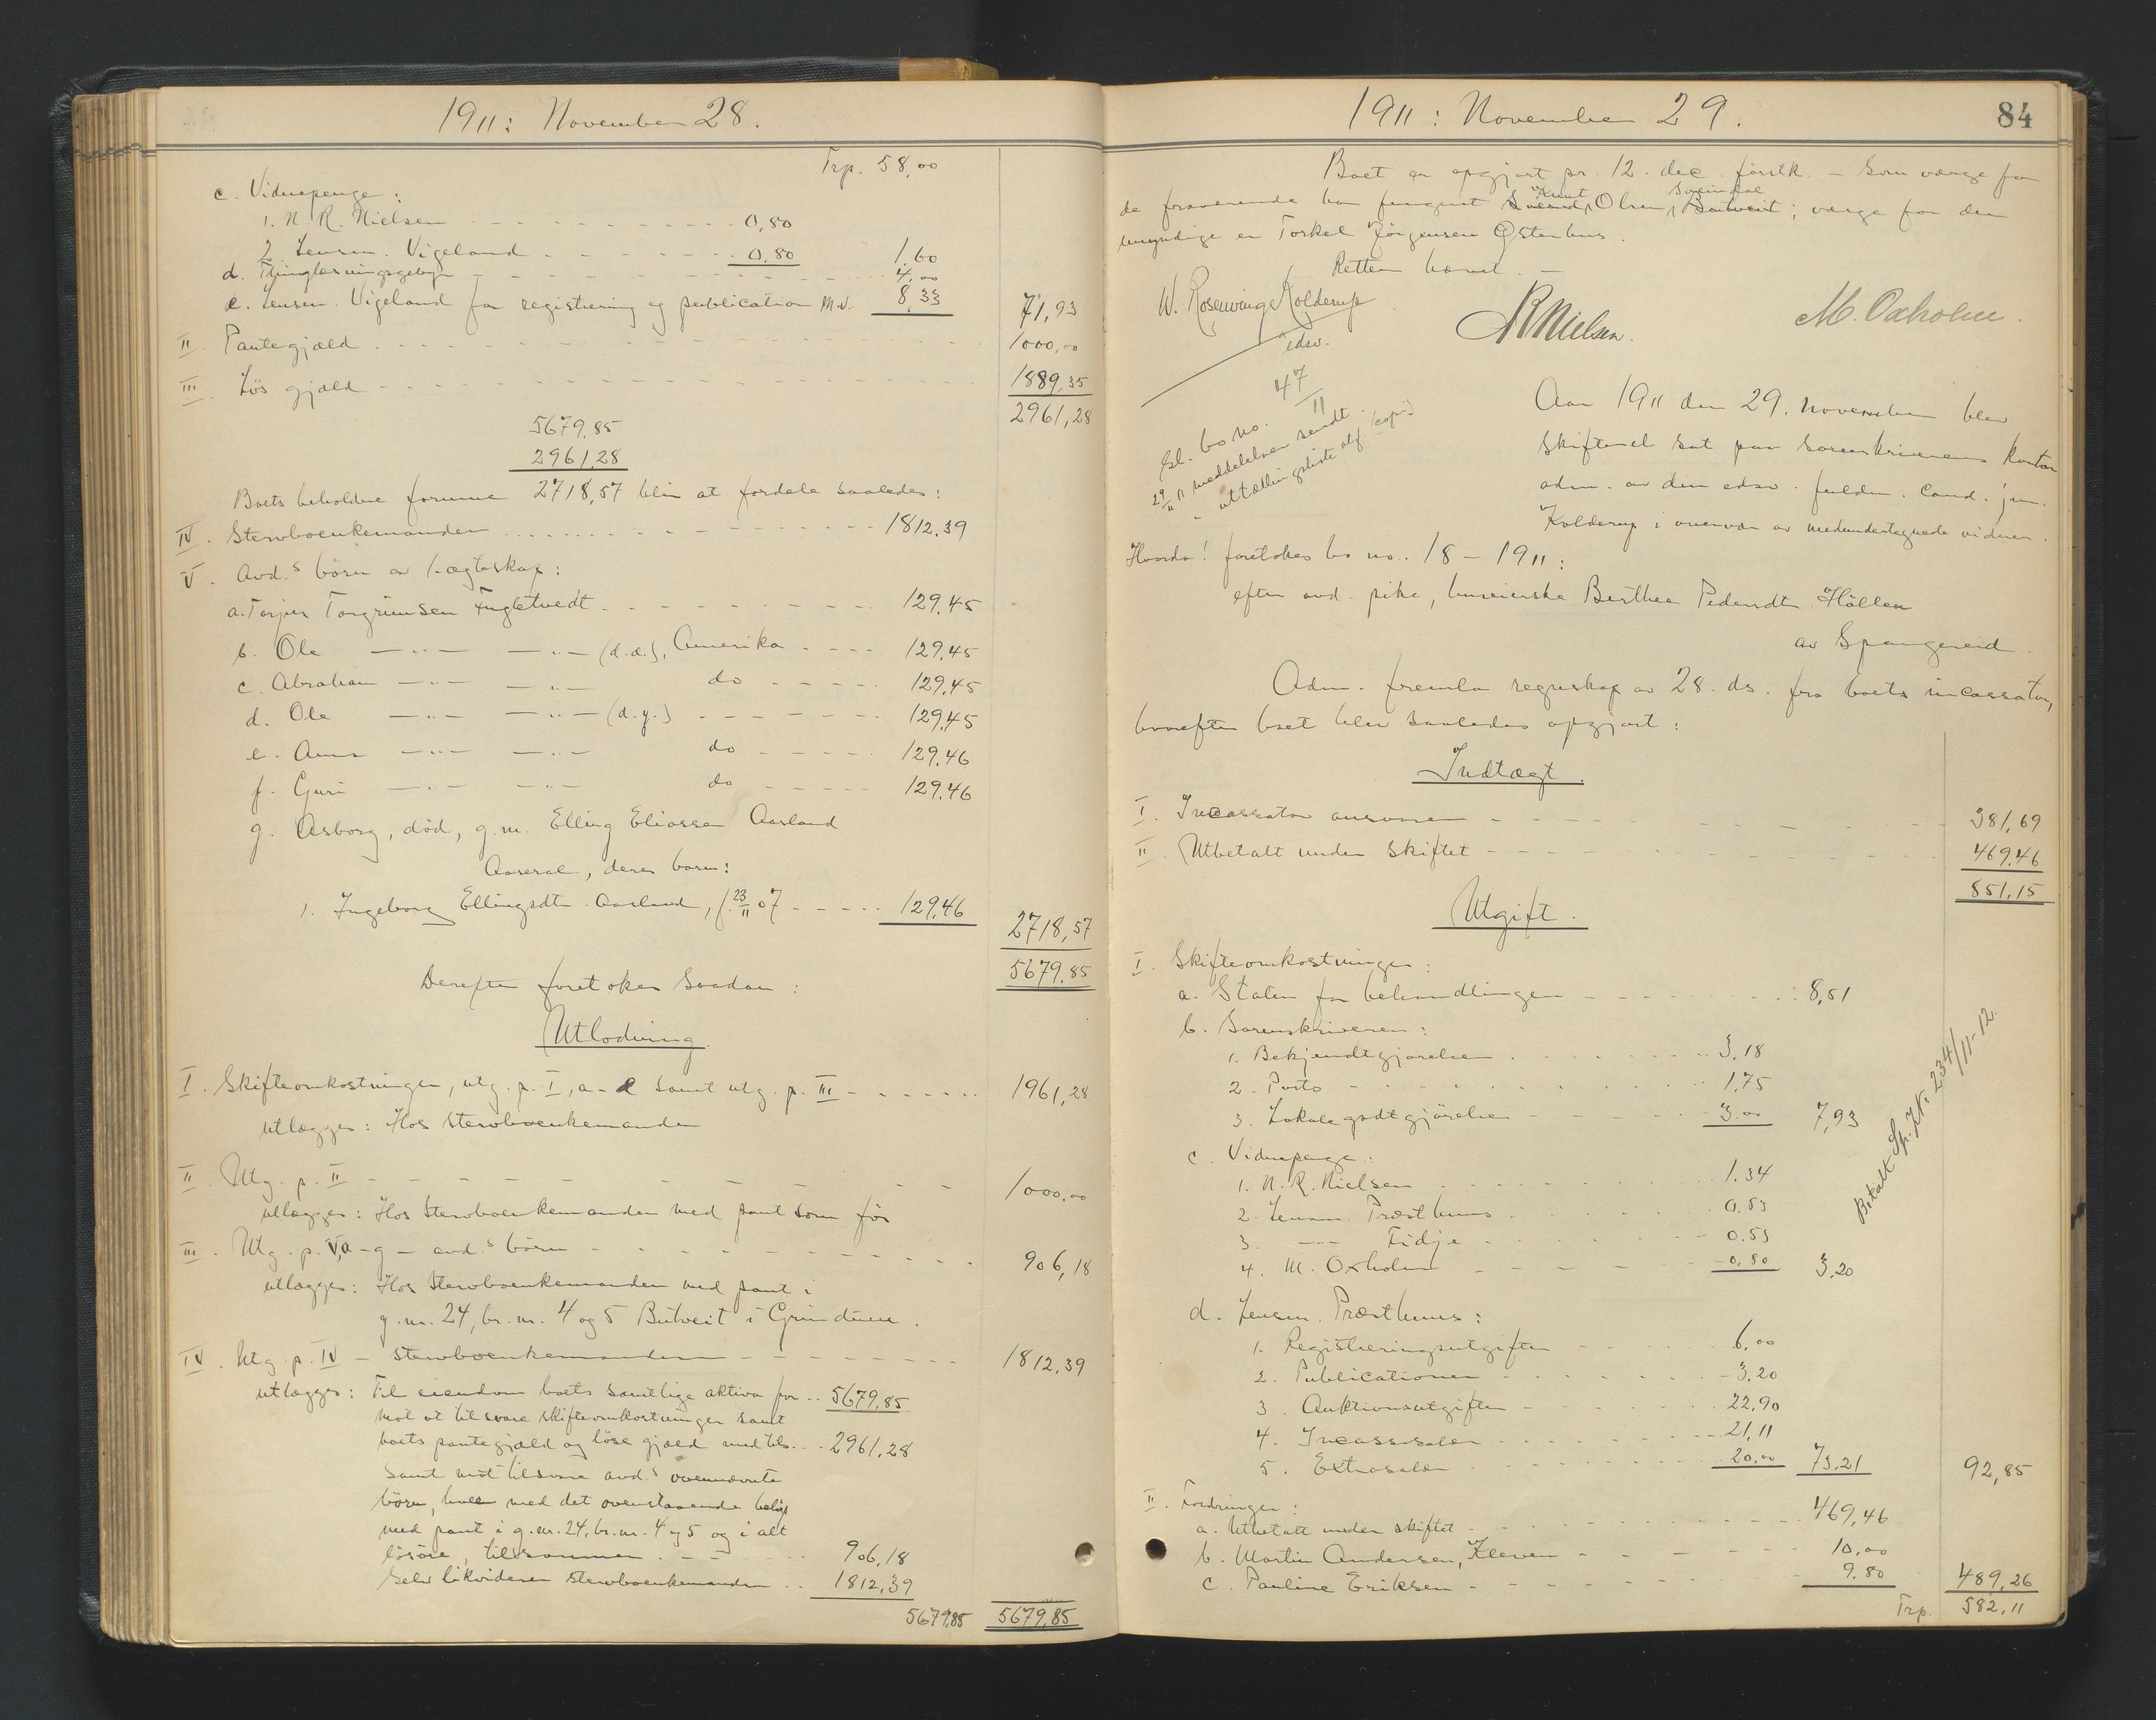 1911: November 28.
Trp. 58,00
c. Vidnepenge:
1. N. R. Nielsen 0,80
2. Lensm. Vigeland 0,80 1,60
d. Thinglæsningsgebyr 4,00
e. Lensm. Vigeland for registrering og publication m.v. 8,33 71,93
II. Pantegjæld 1000,00
III. Løs gjæld 1889,35
2961,28
5679,85
2961,28
Boets beholdne formue 2718,57 blir at fordele saaledes:
IV. Stervboenkemanden 1812,39
V. Avd.s børn av ægteskap:
a. Torjus Torgrimsen Fugletvedt 129,45
b. Ole —"— —"— (d.æ.), Amerika 129,45
c. Abraham —"— —"— do 129,45
d. Ole —"— —"— (d.y.) 129,45
e. Anna —"— —"— do 129,46
f. Guri —"— —"— do 129,46
g. Asborg, død, g.m. Elling Eliassen Aasland
Aaseral, deres barn:
1. Ingeborg Ellingsdtr. Aasland, f. 23/11 07 129,46
2718,57
5679,85
Derefter foretokes saadan:
Utlodning
I. Skifteomkostninger, utg. p. I, a-e samt utg. p. III 1961,28
utlægges: Hos stervboenkemanden
II. Utg. p. II 1000,00
utlægges: Hos stervboenkemanden med pant som før
III. Utg. p. V, a-g - avd.s børn 906,18
utlægges: Hos stervboenkemanden med pant i
g.nr. 24, br.nr. 4 og 5 Butveit i Grindum.
IV. Utg. p. IV - stervboenkemanden 1812,39
utlægges: Til eiendom boets samtlige aktiva for 5679,85
mot at tilsvare skifteomkostninger samt
boets pantegjæld og løse gjæld med tils. 2961,28
samt mot tilsvare avd.s ovennævnte
børn, hver med det ovenstaaende beløp
med pant i g.nr. 24, br.nr. 4 og 5 og i alt
løsøre, tilsammen 906,18
Selv likviderer stervboenkemanden 1812,39
5679,85 5679,85
1911: November 29.
84
Boet er opgjort pr. 12. dec. førstk. - Som værge for
Knut Sveindal
de fraværende har fungert Olsen Butveit; værge for den
umyndige er Torkel Jørgensen Østerhus.
Retten hævet. —
W. Rosenvinge Kolderup
edsv.
N R Nielsen.
M. Oxholm.
47/11
Sl. bo no.
29/11 11 meddelelsen sendt
" utlodningsliste utf. (copi)
Aar 1911 den 29. november blev
skifteret sat paa sorenskriverens kontor
adm. av den edsv. fuldm. cand. jur.
Kolderup i overvær av medundertegnede vidner.
Hvorda! foretokes bo no. 18 - 1911:
efter avd. pike, huseierske Berthea Pedersdtr. Hållen
av Spangereid.
Adm. fremla regnskap av 28. ds. fra boets incassator,
hvorefter boet blev saaledes opgjort:
Indtægt.
I. Incassator ansvarer 381,69
II. Utbetalt under skiftet 469,46
851,15
Utgift.
I. Skifteomkostninger:
a. Staten for behandlingen 8,51
b. Sorenskriveren:
1. Bekjendtgjørelser 3,18
2. Porto 1,75
3. Lokalegodtgjørelse 3,00 7,93
c. Vidnepenge:
1. N. R. Nielsen 1.34
2. Lensm. Præsthuus 0.53
3. —"— Fidje 0.53
4. M. Oxholm 0,80 3,20
d. Lensm. Præsthuus:
1. Registreringsutgifter 6,00
2. Publicationer 3,20
3. Auktionsutgifter 22,90
4. Incassosalær 21,11
5. Extrasalær 20,00 73,21 92,85
Betalt Sp. J.N. 234/11-12
II. Fordringer:
a. Utbetalt under skiftet 469,46
b. Martin Andersen, Kleven 10,00
c. Pauline Eriksen 9.80 489,26
Trp. 582,11